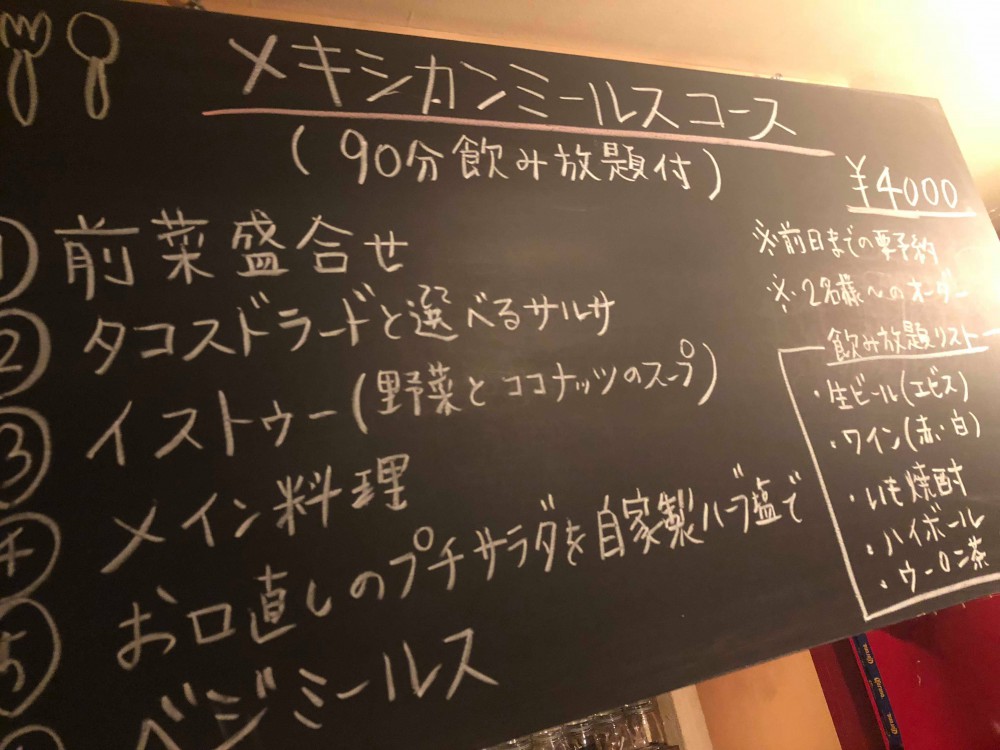 メキシカンミールスコース
(90分飲み放題付)
¥4000
※前日までの要予約
※2名様〜のオーダー
① 前菜盛合せ
② タコスドラードと選べるサルサ
③ イストゥー(野菜とココナッツのスープ)
④ メイン料理
⑤ お口直しのプチサラダを自家製ハーブ塩で
ベジミールス
飲み放題リスト
・生ビール(エビス)
・ワイン(赤・白)
・いも焼酎
・ハイボール
・ウーロン茶